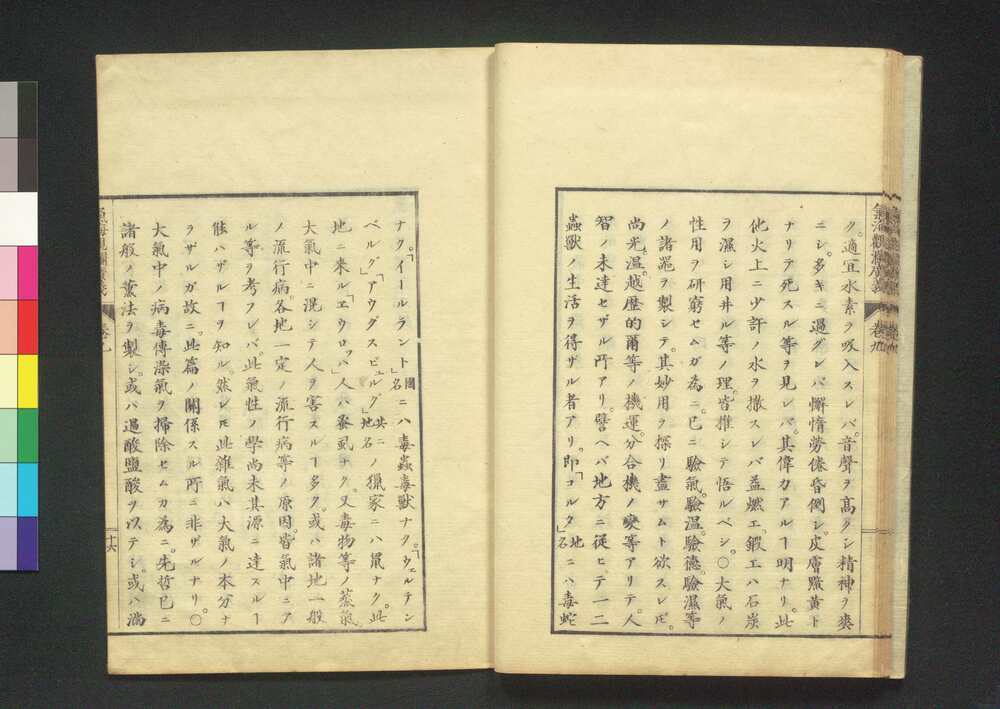 ク。適宜水素ヲ吸入スレバ。音聲ヲ高クシ精神ヲ爽
ニシ。多キニ過グレバ懈惰勞倦昏倒シ。皮膚黯黄ト
ナリテ死スル等ヲ見レバ。其偉力アルヿ明ナリ。此
他火上ニ少許ノ水ヲ撒スレバ益燃エ。鍜工ハ石炭
ヲ濕シ用井ル等ノ理。皆推シテ悟ルベシ。〇大氣ノ
性用ヲ研窮セムガ為ニ。已ニ驗氣。驗温。驗德。驗濕等
ノ諸噐ヲ製シテ。其妙用ヲ探リ盡サムト欲スレ𪜈。
尚光。温。越歴的爾等ノ機運。分合機ノ變等アリテ。人
智ノ未達セザル所アリ。譬ヘバ地方ニ從ヒテ一二
蟲獸ノ生活ヲ得ザル者アリ。即「コルタ」地名ニハ毒蛇
氣海觀瀾廣義 卷九
ナク。「イールラント」國名ニハ毒蟲毒獸ナク。「ウェルテン
ベルグ」「アウグスビュルグ」共ニ地名ノ獵家ニハ鼠ナク。此
地ニ來ル「エウロッパ」人ハ蚤虱ナク。又毒物等ノ蒸氣。
大氣中ニ混シテ人ヲ害スルヿ多ク。或ハ諸地一般
ノ流行病。各地一定ノ流行病等ノ原因。皆氣中ニア
ル等ヲ考フレバ。此氣性ノ學尚未其源ニ達スルヿ
能ハザルヿヲ知ル。然レ𪜈此雜氣ハ大氣ノ本分ナ
ラザルガ故ニ。此篇ノ關係スル所ニ非ザルナリ。〇
大氣中ノ病毒傳染氣ヲ掃除セムカ為ニ。先哲已ニ
諸般ノ薫法ヲ製シ。或ハ過酸鹽酸ヲ以テシ。或ハ満
氣海觀瀾廣義 卷九 十六